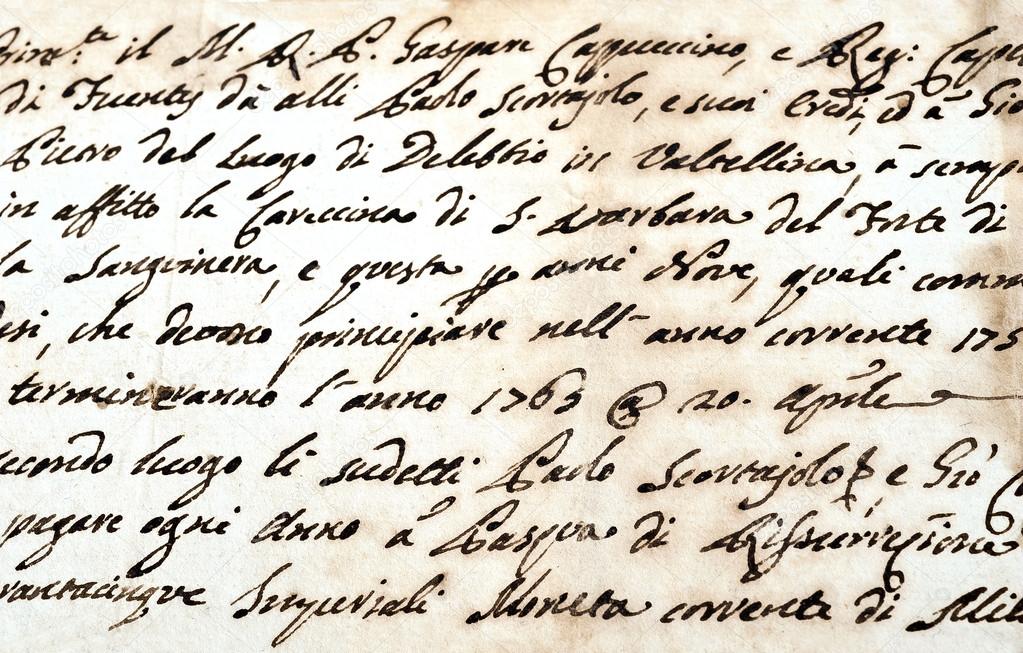 il M. R. P. Gaspare Cappuccino, e Reg:
di Fuentes dà alli Paolo Scortajolo, e suoi Eredi, ed à Gio
Pietro del Luogo di Delebbio in Valtellina, à
in affitto la Cavecina di S. Barbara del Forte di
la Sanguinera, e questa p anni Nove, quali
che deono principiare nell' anno corrente 175
termineranno l' anno 1763 @ 20. Aprile
econdo luogo li sudetti Paolo Scortajolo, e Gio
pagare ogni Anno à Pasqua di Rissurrezione
rantacinque Imperiali Moneta corrente di Mila